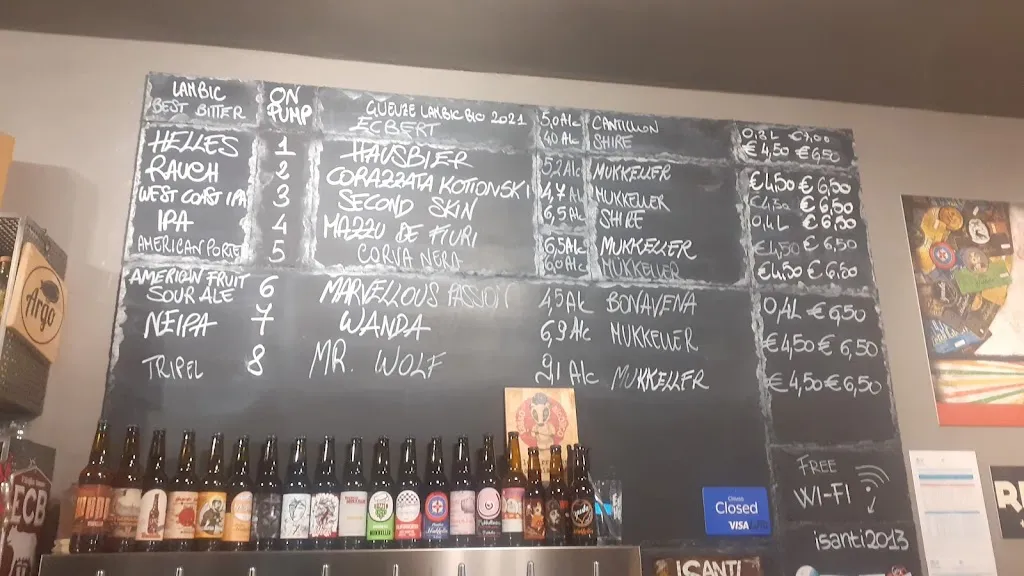 LAMBIC ON PUMP GUEUZE LAMBIC BIO 2021 5,0 Alc CANTILLON 0,2L €7,00
BEST BITTER ECBERT 4,0 Alc SHIRE €4,50 €6,50
HELLES 1 HAUSBIER 5,2 Alc MUKKELLER €4,50 €6,50
RAUCH 2 CORAZZATA KOTIONSKI 4,7 Alc MUKKELLER €4,50 €6,50
WEST COAST IPA 3 SECOND SKIN 6,5 Alc SHIRE 0,4L €6,50
IPA 4 MAZZO DE FIURI 6,5 Alc MUKKELLER €4,50 €6,50
AMERICAN PORTER 5 CORVA NERA MUKKELLER €4,50 €6,50
AMERICAN FRUIT SOUR ALE 6 MARVELLOUS 4,5 Alc BONAVENA 0,4L €6,50
NEIPA 7 WANDA 6,9 Alc MUKKELLER €4,50 €6,50
TRIPEL 8 MR. WOLF 9,1 Alc MUKKELLER €4,50 €6,50
FREE
WI-FI
isanti2013
Argo
ECB
Closed
VISA
ISANTI